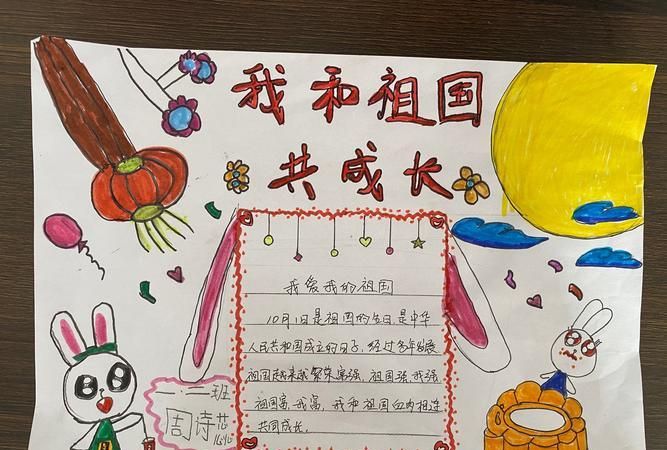 我和祖国
共成长
我爱我的祖国
10月1日是祖国的生日,是中华
人民共和国成立的日子,经过多年发展
祖国越来越繁荣富强,祖国强,我强,
祖国富,我富,我和祖国血肉相连
共同成长。
一·一班
周诗芯